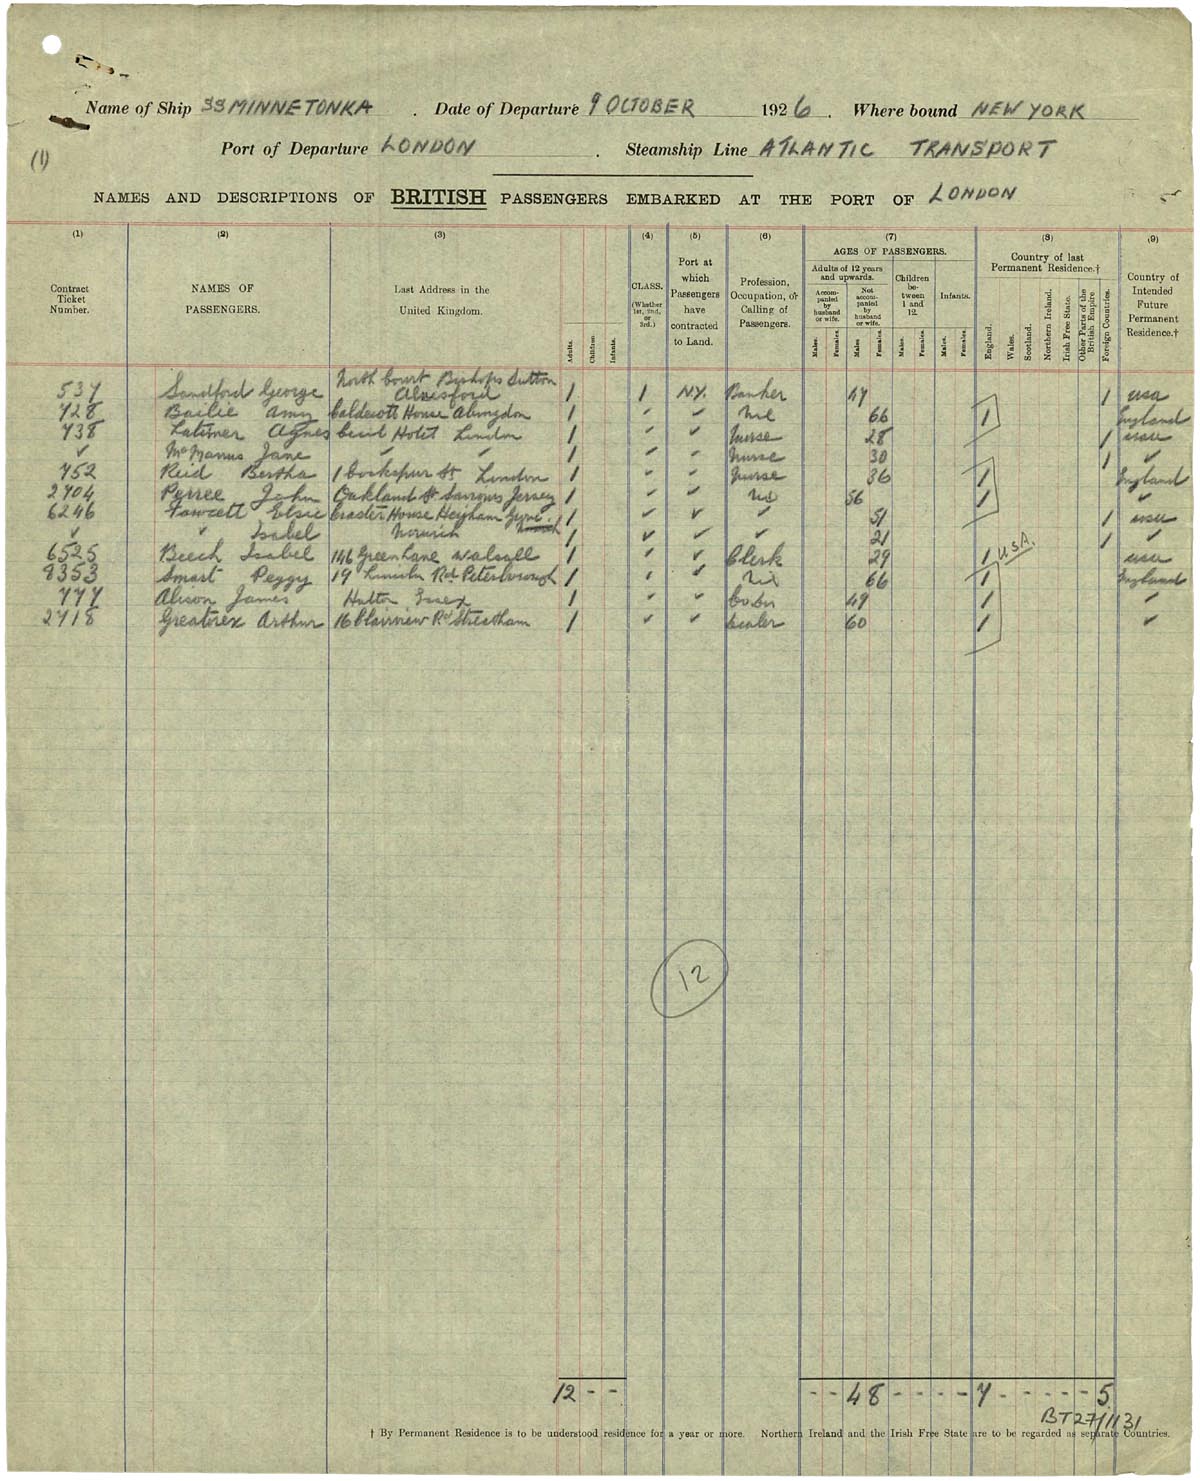 Name of Ship SS MINNETONKA . Date of Departure 9 OCTOBER 1926 . Where bound NEW YORK
(1) Port of Departure LONDON . Steamship Line ATLANTIC TRANSPORT
NAMES AND DESCRIPTIONS OF BRITISH PASSENGERS EMBARKED AT THE PORT OF LONDON
(1) (2) (3) (4) (5) (6) (7) (8) (9)
Contract Ticket Number.
NAMES OF PASSENGERS.
Last Address in the United Kingdom.
Adults.
Children.
Infants.
CLASS. (Whether 1st, 2nd, or 3rd.)
Port at which Passengers have contracted to Land.
Profession, Occupation, or Calling of Passengers.
AGES OF PASSENGERS.
Adults of 12 years and upwards.
Accompanied by husband or wife.
Not accompanied by husband or wife.
Children between 1 and 12.
Infants.
Males. Females. Males Females. Males. Females. Males. Females.
Country of last Permanent Residence.†
England.
Wales.
Scotland.
Northern Ireland.
Irish Free State.
Other Parts of the British Empire.
Foreign Countries.
Country of Intended Future Permanent Residence.†
537 Sandford George North Court Bishops Sutton Alresford 1 1 N.Y. Banker 47 1 USA
728 Bailie Amy Caldecott House Abingdon 1 ✓ ✓ Nil 66 1 England
738 Latimer Agnes Cecil Hotel London 1 ✓ ✓ Nurse 28 1 USA
✓ McManus Jane ✓ ✓ 1 ✓ ✓ Nurse 30 1 ✓
752 Reid Bertha 1 Cockspur St London 1 ✓ ✓ Nurse 36 1 England
2704 Perree John Oakland St Saviours Jersey 1 ✓ ✓ Nil 56 1 ✓
6246 Fawcett Elsie House Heigham 1 ✓ ✓ ✓ 51 1 USA
✓ ✓ Isabel Norwich 1 ✓ ✓ ✓ 21 1 ✓
6525 Beech Isabel 146 Green Lane Walsall 1 ✓ ✓ Clerk 29 1 U.S.A. USA
8353 Smart Peggy 19 Lincoln Rd Peterborough 1 ✓ ✓ Nil 66 1 England
777 Alison James Hutton Essex 1 ✓ ✓ 49 1 ✓
2718 Greatorex Arthur 16 Clairview Rd Streatham 1 ✓ ✓ Dealer 60 1 ✓
12
12 - - - - 4 8 - - - - 7 - - - - - 5
BT27/1131
† By Permanent Residence is to be understood residence for a year or more. Northern Ireland and the Irish Free State are to be regarded as separate Countries.